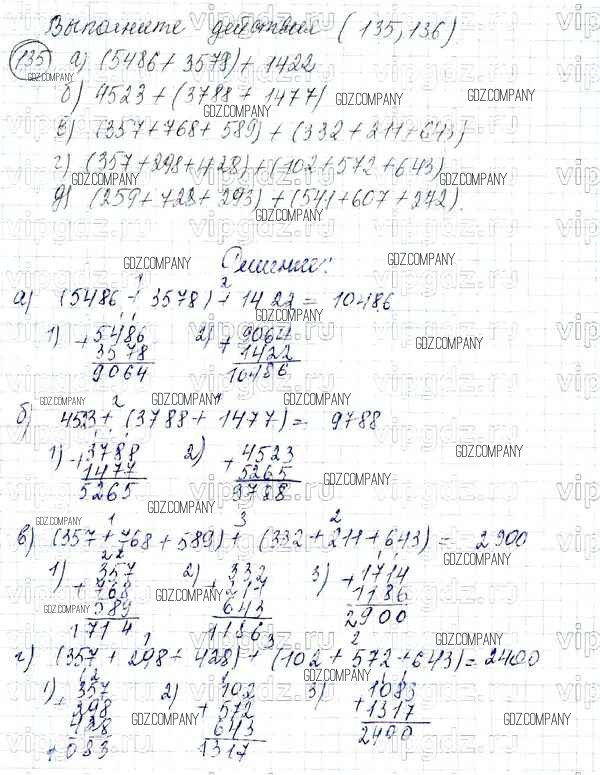 Выполните действия (135, 136)
135 а) (5486 + 3578) + 1422
б) 4523 + (3788 + 1477)
в) (357 + 768 + 589) + (332 + 211 + 643)
г) (357 + 298 + 428) + (102 + 572 + 643)
д) (259 + 728 + 293) + (541 + 607 + 272).
Решение:
1 2
а) (5486 + 3578) + 1422 = 10486
1) + 5486 2) + 9064
3578 1422
9064 10486
2 1
б) 4523 + (3788 + 1477) = 9788
1) + 3788 2) + 4523
1477 5265
5265 9788
1 3 2
в) (357 + 768 + 589) + (332 + 211 + 643) = 2900
1) 357 2) 332 3) + 1714
+ 768 + 211 1186
589 643 2900
1714 1186
1 3 2
г) (357 + 298 + 428) + (102 + 572 + 643) = 2400
1) 357 2) 102 3) 1083
+ 298 + 572 + 1317
428 643 2400
1083 1317
GDZ.COMPANY
vipgdz.ru